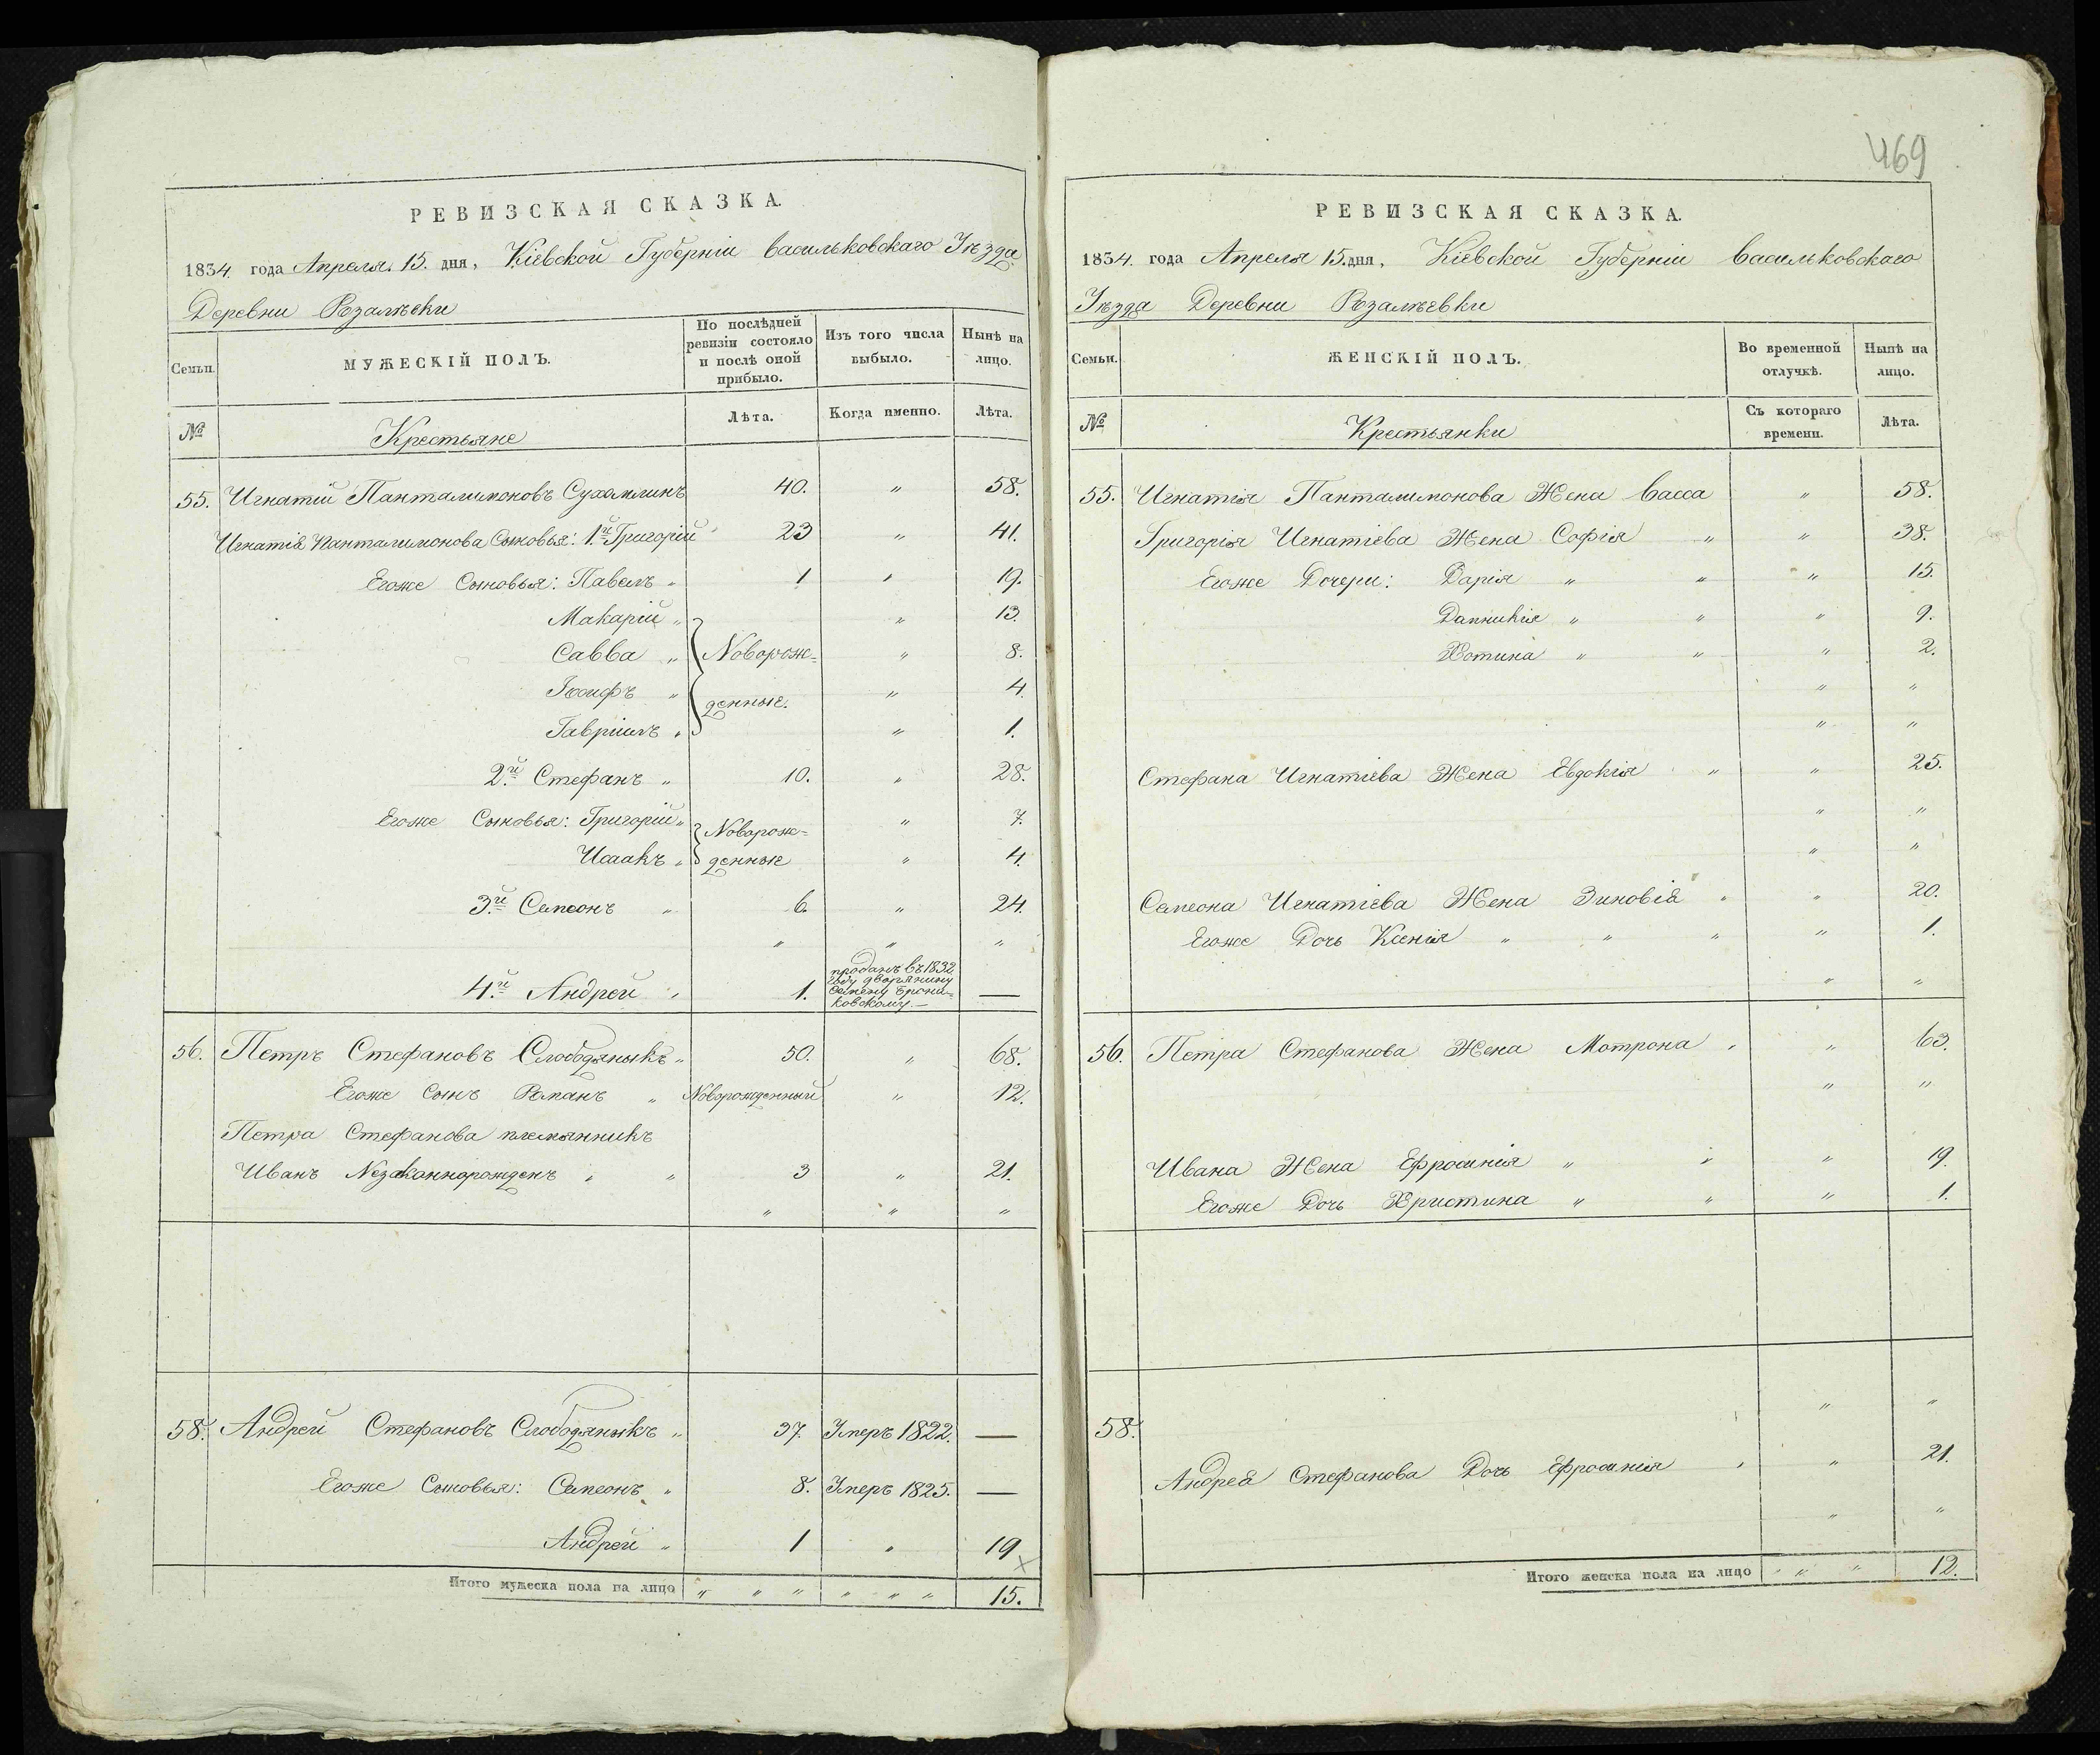 469
РЕВИЗСКАЯ СКАЗКА.
1834. года Апреля. 15. дня, Кіевской Губерніи Васильковскаго Уѣзда
Деревни
Семьи.
МУЖЕСКІЙ ПОЛЪ.
По послѣдней ревизіи состояло и послѣ оной прибыло.
Изъ того числа выбыло.
Нынѣ на лицо.
№
Крестьяне
Лѣта.
Когда именно.
Лѣта.
55. Игнатій Панталимоновъ 40. " 58.
Игнатія Панталимонова Сыновья: 1.й Григорій 23 " 41.
Егоже Сыновья: Павелъ " 1 " 19.
Макарій " " 13.
Савва " Новорож= " 8.
Іосифъ " денные. " 4.
Гавріилъ " " 1.
2.й Стефанъ " 10. " 28.
Егоже Сыновья: Григорій " Новорож= " 7.
Исаакъ " денные " 4.
3.й Симеонъ " 6. " 24.
" " "
4.й Андрей " 1. проданъ въ 1832 году дворянину Семену Брони=ковскому. —
56. Петръ Стефановъ Слободяныкъ " 50. " 68.
Егоже Сынъ Романъ " Новорожденный " 12.
Петра Стефанова племянникъ
Иванъ Незаконнорожденъ " " 3 " 21.
" " "
58. Андрей Стефановъ Слободяныкъ " 37. Умеръ 1822. —
Егоже Сыновья: Симеонъ " 8. Умеръ 1825. —
Андрей " 1 " 19
Итого мужеска пола на лицо " " " " " " 15.
РЕВИЗСКАЯ СКАЗКА.
1834. года Апреля 15. дня, Кіевской Губерніи Васильковскаго
Уѣзда Деревни
Семьи.
ЖЕНСКІЙ ПОЛЪ.
Во временной отлучкѣ.
Нынѣ на лицо.
№
Крестьянки
Съ котораго времени.
Лѣта.
55. Игнатія Панталимонова Жена Васса " 58.
Григорія Игнатіева Жена Софія " " 38.
Егоже Дочери: Дарія " " " 15.
" " " 9.
Хотина " " " 2.
" "
" "
Стефана Игнатіева Жена Евдокія " " 25.
" "
" "
Симеона Игнатіева Жена Зиновія " " 20.
Егоже Дочь Ксенія " " " " 1.
" "
56. Петра Стефанова Жена Мотрона " " 63.
" "
Ивана Жена Ефросинія " " " 19.
Егоже Дочь Христина " " " 1.
58. " "
Андрея Стефанова Дочь Ефросинія " " 21.
" "
Итого женска пола на лицо " " " 12.